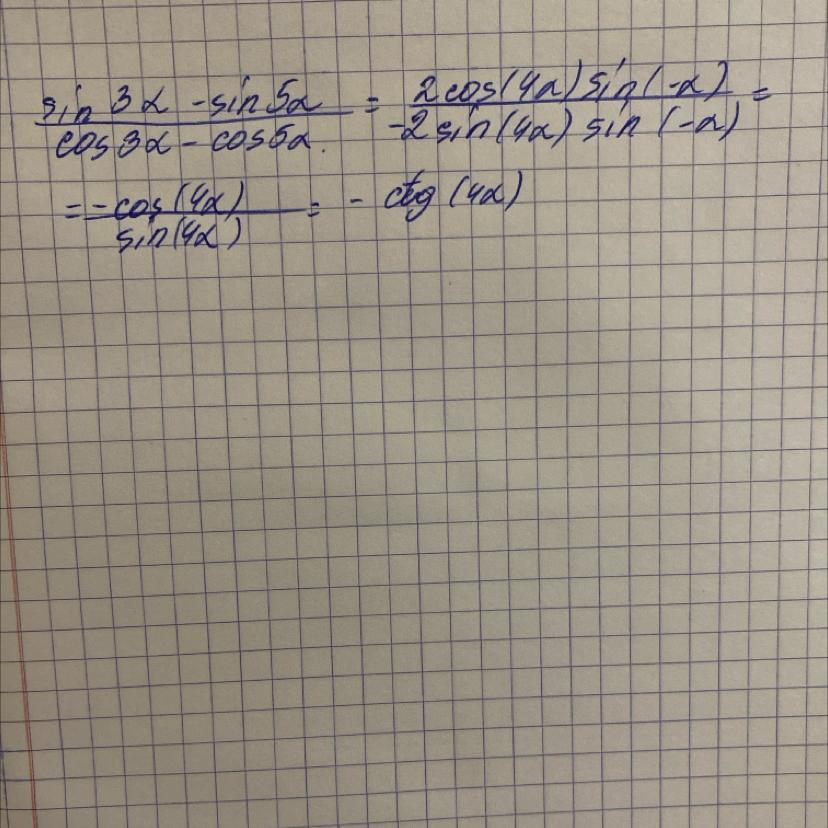 sin 3α - sin 5α / cos 3α - cos 5α = 2 cos(4α) sin(-α) / -2 sin(4α) sin(-α) =
= -cos(4α) / sin(4α) = - ctg (4α)